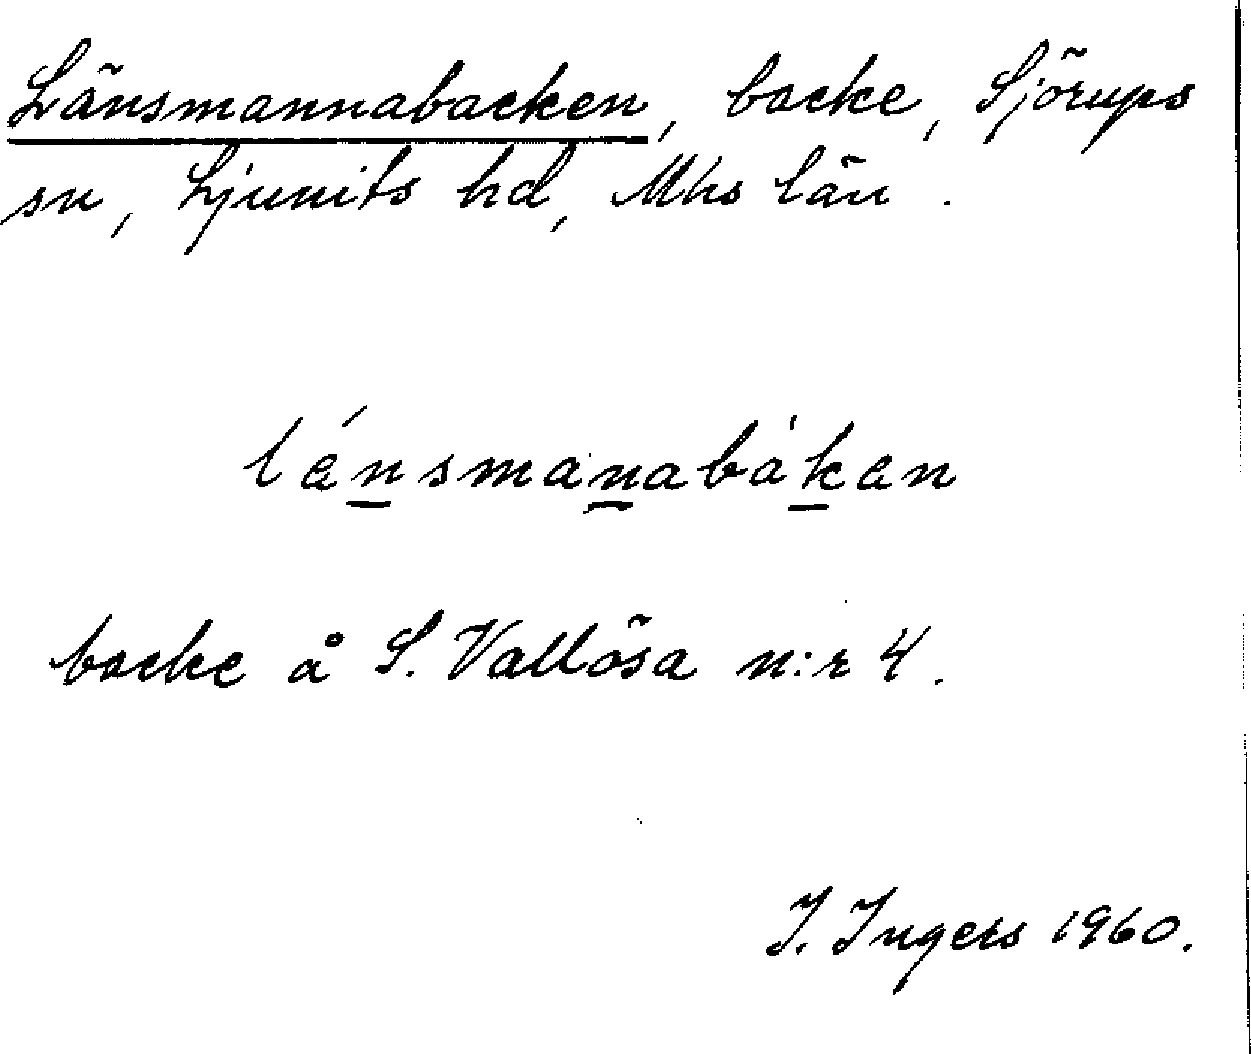 Länsmannabacken, backe, Sjörups
sn, Ljunits hd, Mhs län.
lénsmanabákan
backe å S. Vallösa n:r 4.
I. Ingers 1960.